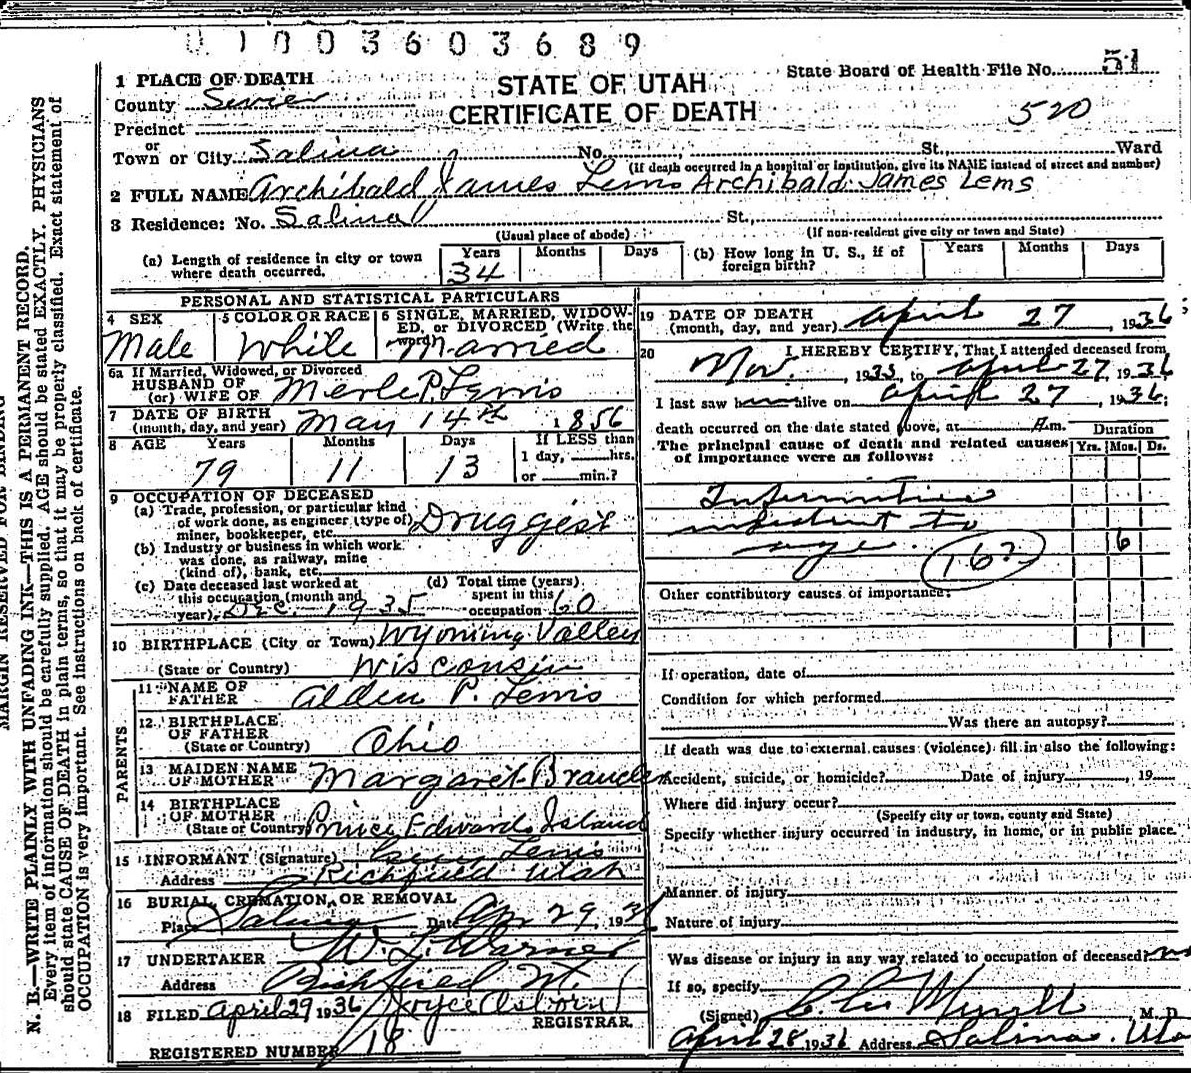 0 1 0 0 3 6 0 3 6 8 9
State Board of Health File No. 51
STATE OF UTAH
CERTIFICATE OF DEATH
520
1 PLACE OF DEATH
County Sevier
Precinct
or
Town or City Salina No. St., Ward
(If death occurred in a hospital or institution, give its NAME instead of street and number)
2 FULL NAME Archibald James Lems Archibald James Lems
3 Residence: No. Salina St.,
(Usual place of abode) (If non-resident give city or town and State)
(a) Length of residence in city or town where death occurred. Years 34 Months Days (b) How long in U. S., if of foreign birth? Years Months Days
PERSONAL AND STATISTICAL PARTICULARS
4 SEX
Male
5 COLOR OR RACE
White
6 SINGLE, MARRIED, WIDOW-
ED, or DIVORCED (Write the
word)
Married
6a If Married, Widowed, or Divorced
HUSBAND OF
(or) WIFE OF Merle P. Lewis
7 DATE OF BIRTH
(month, day, and year) May 14th 1856
8 AGE Years Months Days If LESS than
1 day, hrs.
or min.?
79 11 13
9 OCCUPATION OF DECEASED
(a) Trade, profession, or particular kind
of work done, as engineer (type of)
miner, bookkeeper, etc. Druggist
(b) Industry or business in which work
was done, as railway, mine
(kind of), bank, etc.
(c) Date deceased last worked at
this occupation (month and
year) Dec. 1935
(d) Total time (years)
spent in this
occupation 60
10 BIRTHPLACE (City or Town) Wyoming Valley
(State or Country) Wisconsin
PARENTS
11 NAME OF
FATHER Alden P. Lewis
12 BIRTHPLACE
OF FATHER
(State or Country) Ohio
13 MAIDEN NAME
OF MOTHER Margaret
14 BIRTHPLACE
OF MOTHER
(State or Country) Prince Edwards Island
15 INFORMANT (Signature) Lewis
Address Richfield Utah
16 BURIAL, CREMATION, OR REMOVAL
Place Salina Date Apr 29, 1936
17 UNDERTAKER W. L. Warner
Address Richfield
18 FILED April 29 1936 Joyce Osborn
REGISTRAR
REGISTERED NUMBER 18
19 DATE OF DEATH
(month, day, and year) April 27, 1936;
20 I HEREBY CERTIFY, That I attended deceased from
Nov., 1935, to April 27, 1936
I last saw him alive on April 27, 1936;
death occurred on the date stated above, at A.m.
The principal cause of death and related causes
of importance were as follows:
Duration
Yrs. Mos. Ds.
Infirmities
incident to
age. 162 6
Other contributory causes of importance:
If operation, date of
Condition for which performed
Was there an autopsy?
If death was due to external causes (violence) fill in also the following:
Accident, suicide, or homicide? Date of injury, 19
Where did injury occur?
(Specify city or town, county and State)
Specify whether injury occurred in industry, in home, or in public place.
Manner of injury
Nature of injury
Was disease or injury in any way related to occupation of deceased? no
If so, specify
(Signed) Merrill, M. D.
April 28 1936 Address Salina, Uta
MARGIN RESERVED FOR BINDING
N. B.—WRITE PLAINLY WITH UNFADING INK—THIS IS A PERMANENT RECORD.
Every item of information should be carefully supplied. AGE should be stated EXACTLY. PHYSICIANS
should state CAUSE OF DEATH in plain terms, so that it may be properly classified. Exact statement of
OCCUPATION is very important. See instructions on back of certificate.